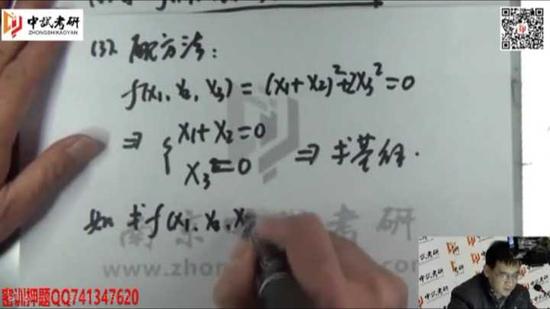 中试考研
ZHONGSHIKAOYAN
(3) 配方法:
f(x₁, x₂, x₃) = (x₁+x₂)²+2x₃²=0
⇒ { x₁+x₂=0
x₃=0 ⇒ 求基础解.
如 求f(x₁, x₂, x
南京 考研
www.zhong
密训押题QQ741347620
中試考研